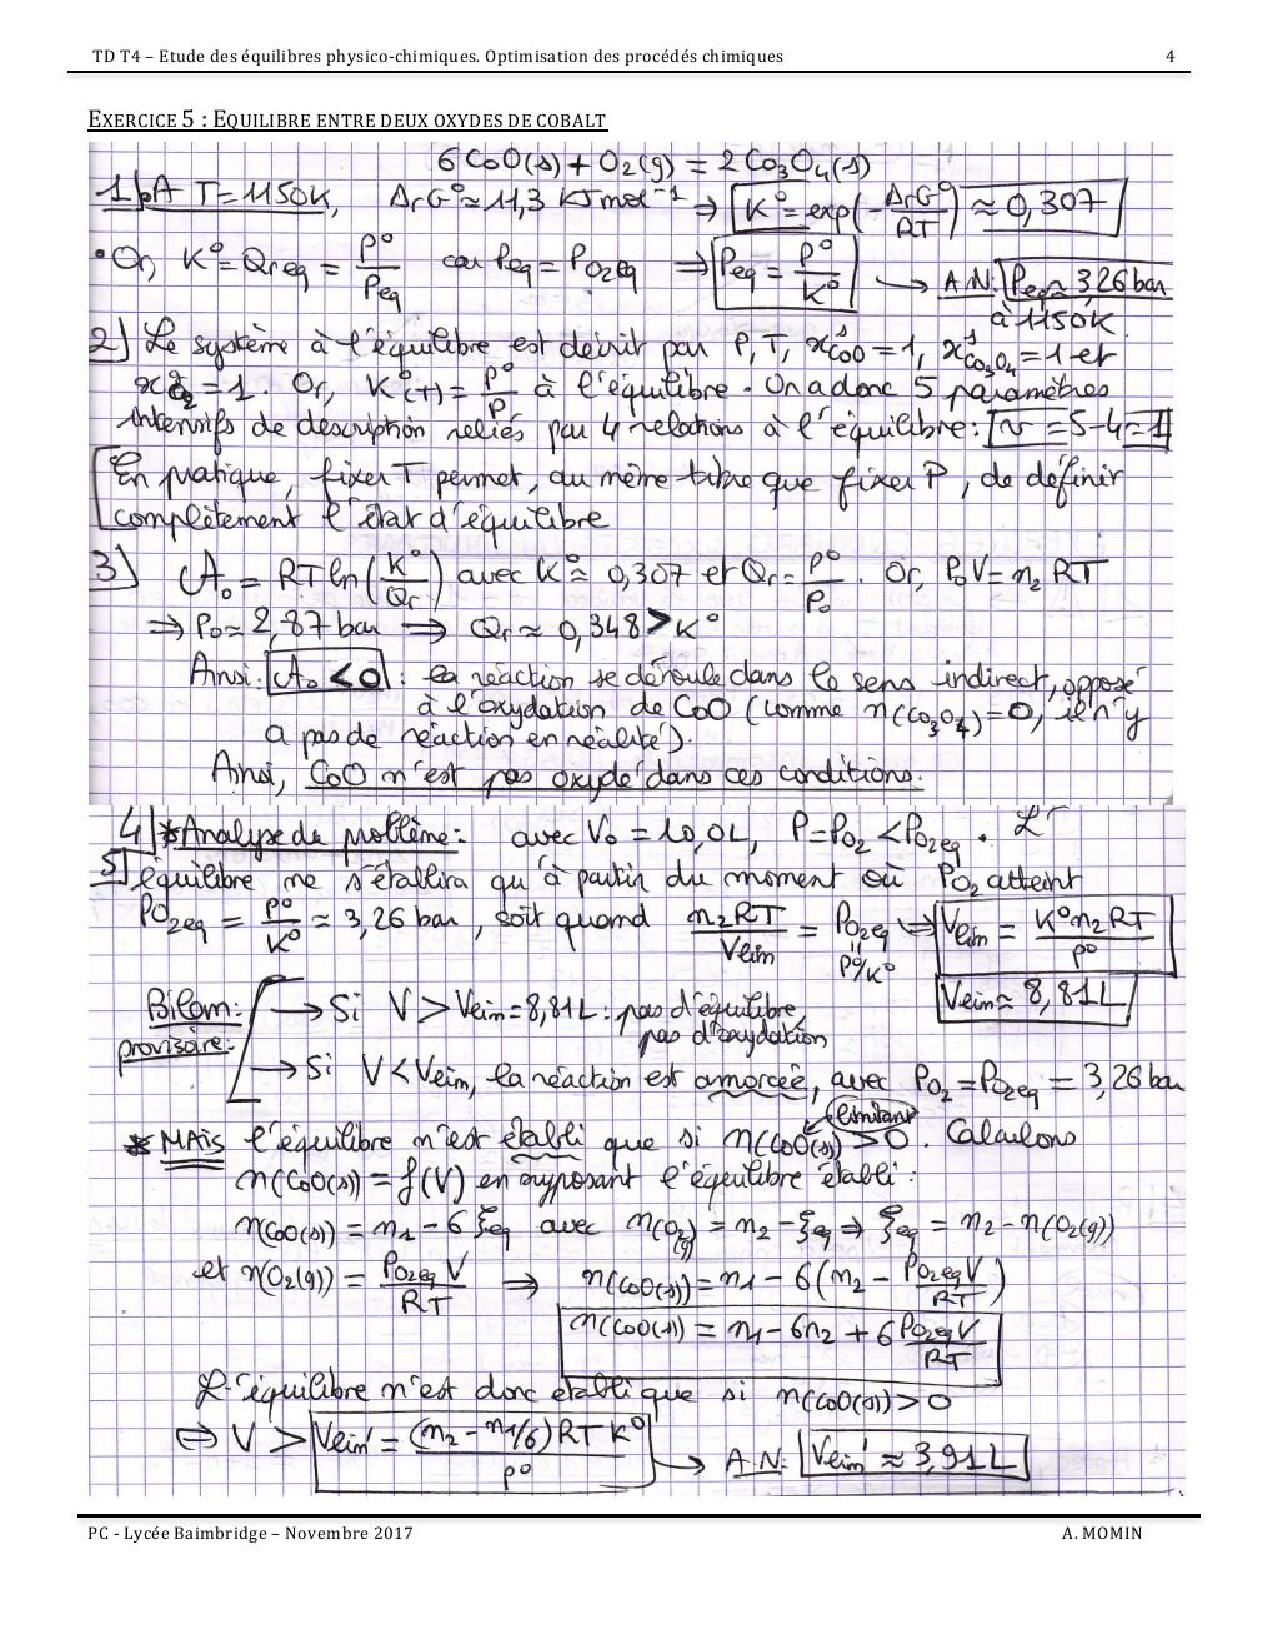 TD T4 – Etude des équilibres physico-chimiques. Optimisation des procédés chimiques 4
EXERCICE 5 : EQUILIBRE ENTRE DEUX OXYDES DE COBALT
6 CoO(s) + O₂(g) = 2 Co₃O₄(s)
1) • A T = 1150K, ΔrG° ≈ 11,3 kJ mol⁻¹ ⇒ K° = exp(-ΔrG°/RT) ≈ 0,307
• Or, K° = Qr eq = P°/Peq car Peq = PO₂eq ⇒ Peq = P°/K° → A.N: Peq ≈ 3,26 bar
à 1150K
2) Le système à l'équilibre est décrit par P, T, xˢCoO = 1, xˢCo₃O₄ = 1 et
xᵍO₂ = 1. Or, K°(T) = P°/P à l'équilibre. On a donc 5 paramètres
intensifs de description reliés par 4 relations à l'équilibre: v = 5-4 = 1
En pratique, fixer T permet, au même titre que fixer P, de définir
complètement l'état d'équilibre
3) A₀ = RT ln(K°/Qr) avec K° ≈ 0,307 et Qr = P°/P₀. Or, P₀V = n₂ RT
⇒ P₀ ≈ 2,87 bar ⇒ Qr ≈ 0,348 > K°
Ainsi: A₀ < 0 : la réaction se déroule dans le sens indirect, opposé
à l'oxydation de CoO (comme n(Co₃O₄) = 0, il n'y
a pas de réaction en réalité).
Ainsi, CoO n'est pas oxydé dans ces conditions.
4) * Analyse du problème: avec V₀ = 10,0L, P = PO₂ < PO₂eq. L'
5) équilibre ne s'établira qu'à partir du moment où PO₂ atteint
PO₂eq = P°/K° ≈ 3,26 bar, soit quand n₂RT/Vlim = PO₂eq = P°/K° ⇒ Vlim = K°n₂RT/P°
Vlim ≈ 8,81 L
Bilan provisoire: → Si V > Vlim = 8,81L : pas d'équilibre,
pas d'oxydation
→ Si V < Vlim, la réaction est amorcée, avec PO₂ = PO₂eq = 3,26 bar
limitant
* MAIS l'équilibre n'est établi que si n(CoO(s)) > 0. Calculons
n(CoO(s)) = f(V) en supposant l'équilibre établi :
n(CoO(s)) = n₁ - 6 ξeq avec n(O₂(g)) = n₂ - ξeq ⇒ ξeq = n₂ - n(O₂(g))
et n(O₂(g)) = PO₂eq V/RT ⇒ n(CoO(s)) = n₁ - 6(n₂ - PO₂eq V/RT)
n(CoO(s)) = n₁ - 6n₂ + 6 PO₂eq V/RT
L'équilibre n'est donc établi que si n(CoO(s)) > 0
⇔ V > Vlim' = (n₂ - n₁/6) RT K°/P° → A.N: Vlim' ≈ 3,91 L
PC - Lycée Baimbridge – Novembre 2017 A. MOMIN